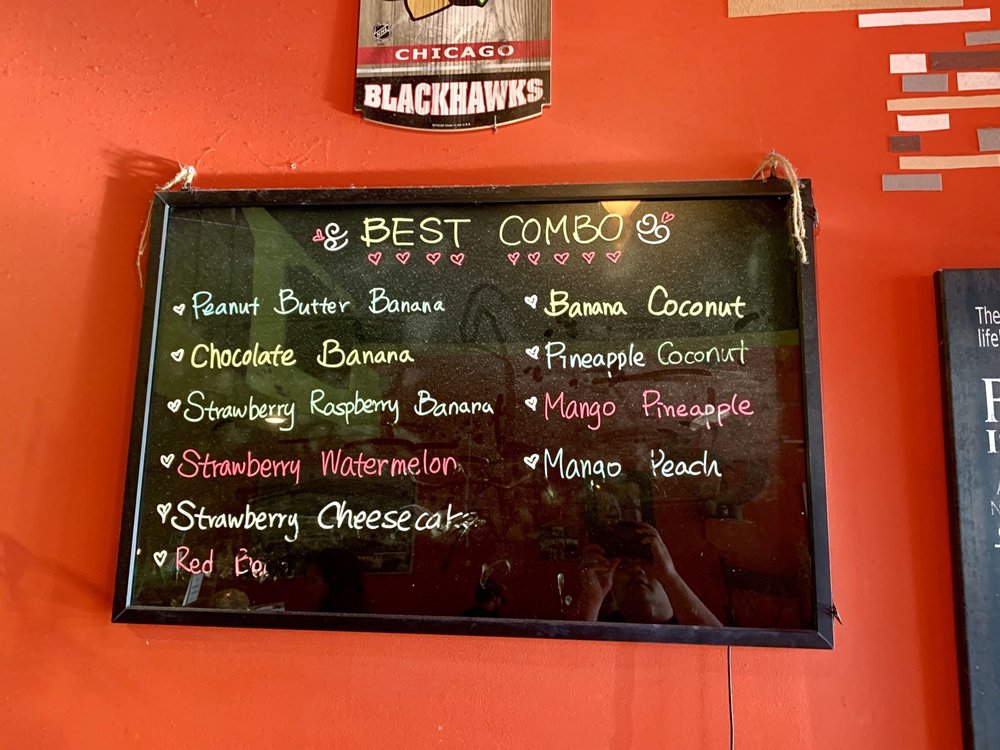 CHICAGO
BLACKHAWKS
BEST COMBO
Peanut Butter Banana
Chocolate Banana
Strawberry Raspberry Banana
Strawberry Watermelon
Strawberry Cheesecak
Red
Banana Coconut
Pineapple Coconut
Mango Pineapple
Mango Peach
The
life'